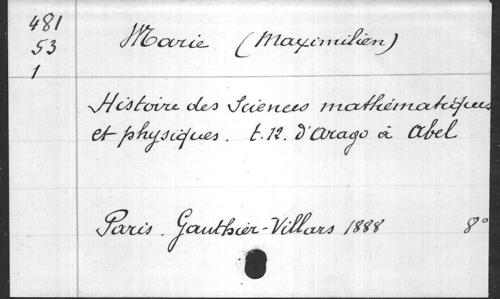 481
53
1
Marie (Maximilien)
Histoire des Sciences mathématiques
et physiques. t.12. d'Arago à Abel
Paris. Gauthier-Villars 1888 8°